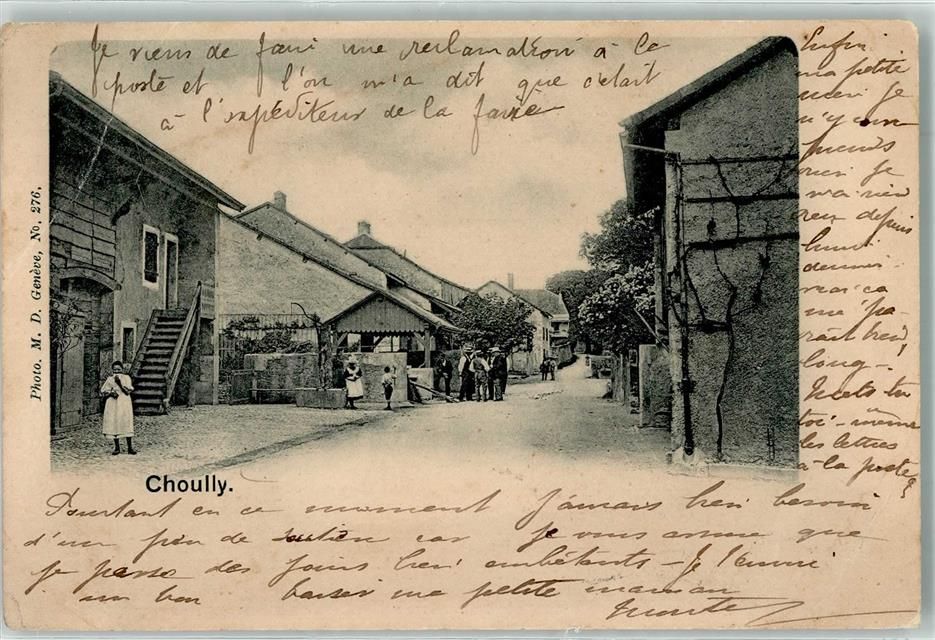 Je viens de faire une reclamation à la
poste et l'on m'a dit que c'était
à l'expéditeur de la faire
Enfin
ma petite
mère je
n'y
rien je
n'ai rien
reçu depuis
lundi
dernier
mais ça
me pa-
raît bien
long -
Mets tu
toi-même
les lettres
à la poste?
Photo. M. D. Genève, No. 276.
Choully.
Pourtant en ce moment j'aurais bien besoin
d'un peu de soutien car je vous assure que
je passe des jours bien embêtants - Je t'envoie
un bon baiser ma petite maman